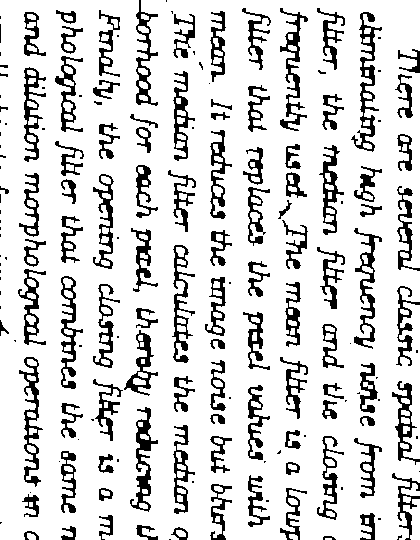 There are several classic spatial filters
eliminating high frequency noise from im
filter, the median filter and the closing
frequently used. The mean filter is a lowp
filter that replaces the pixel values with
mean. It reduces the image noise but blurs
The median filter calculates the median o
borhood for each pixel, thereby reducing th
Finally, the opening closing filter is a m
phological filter that combines the same n
and dilation morphological operations in o